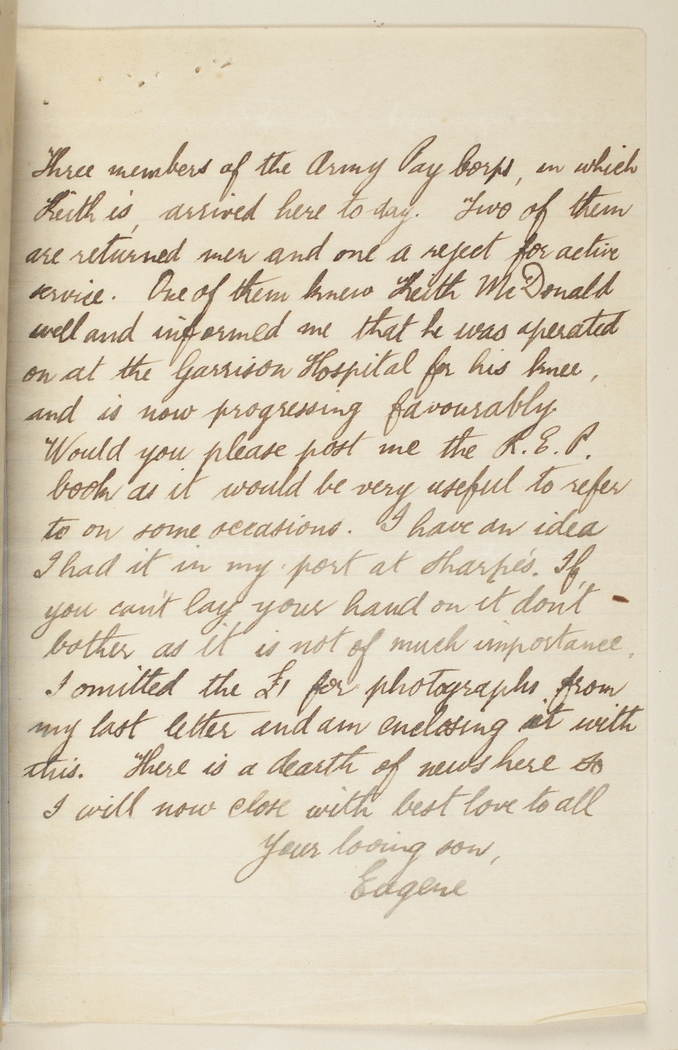 Three members of the Army Pay Corps, in which
Keith is, arrived here to day. Two of them
are returned men and one a reject for active
service. One of them knew Keith McDonald
well and informed me that he was operated
on at the Garrison Hospital for his knee,
and is now progressing favourably.
Would you please post me the R.E.P.
book as it would be very useful to refer
to on some occasions. I have an idea
I had it in my port at Sharpe's. If
you can't lay your hand on it don't
bother as it is not of much importance.
I omitted the £1 for photographs from
my last letter and am enclosing it with
this. There is a dearth of news here so
I will now close with best love to all
Your loving son,
Eugene